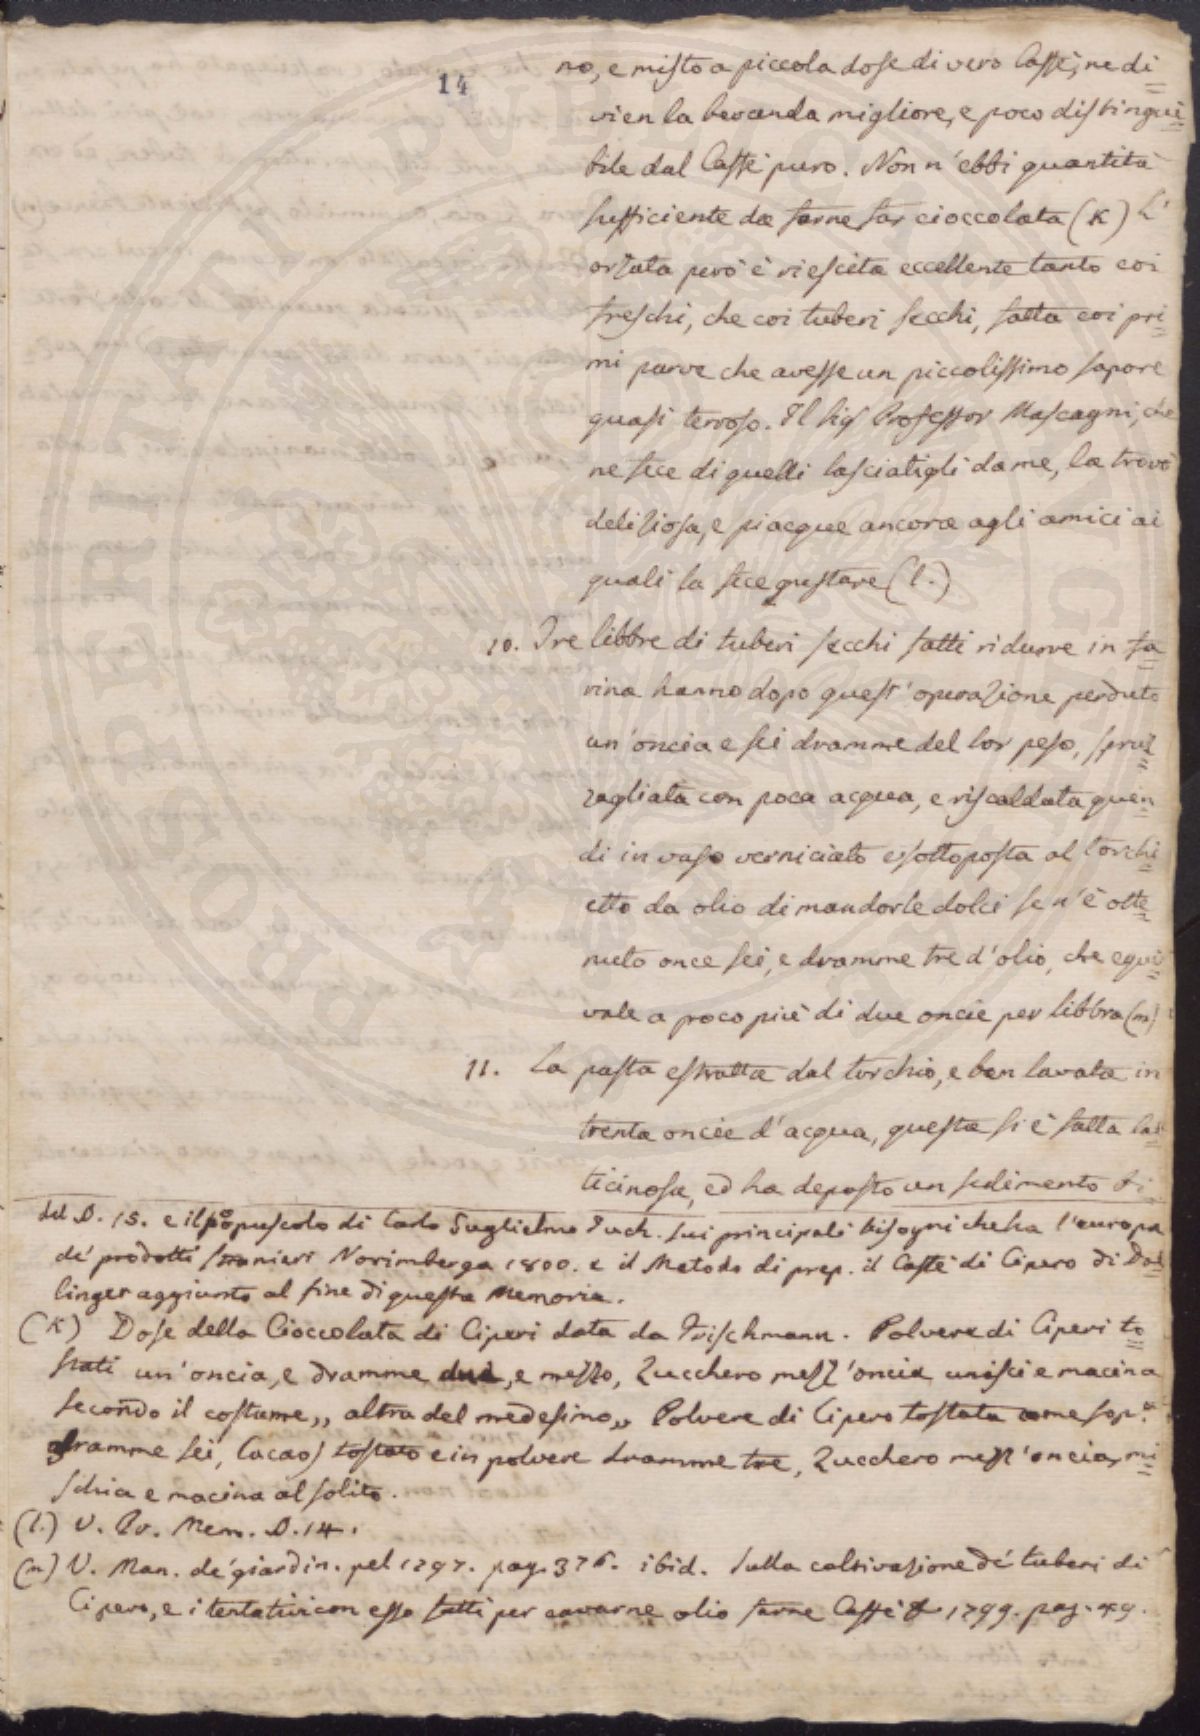 14
no, e misto a piccola dose di vero Caffè, ne di=
vien la bevanda migliore, e poco distingui=
bile dal Caffè puro. Non n'ebbi quantità
sufficiente da farne far cioccolata (K) L'
orzata però è riescita eccellente tanto coi
freschi, che coi tuberi secchi, fatta coi pri=
mi parve che avesse un piccolissimo sapore
quasi terroso. Il Sig Professor Mascagni, che
ne fece di quelli lasciatigli da me, la trovò
deliziosa, e piacque ancora agli amici ai
quali la fece gustare (l.)
10. Tre libbre di tuberi secchi fatti ridurre in fa=
rina hanno dopo quest'operazione perduto
un'oncia e sei dramme del lor peso, spruz=
zagliata con poca acqua, e riscaldata quin=
di in vaso verniciato e sottoposta al torchi=
etto da olio di mandorle dolci se n'è otte=
nuto once sei, e dramme tre d'olio, che equi=
vale a poco più di due oncie per libbra (m)
11. La pasta estratta dal torchio, e ben lavata in
trenta oncie d'acqua, questa si è fatta lat=
ticinosa, ed ha deposto un sedimento bi
del D. 15. e il opuscolo di Carlo Guglielmo sui principali bisogni che ha l'europa
de' prodotti stranieri Norimberga 1800. e il Metodo di prep. il Caffè di Cipero di Dal=
linger aggiunto al fine di questa Memoria.
(K) Dose della Cioccolata di Ciperi data da Frischmann. Polvere di Ciperi to=
stati un'oncia, e dramme due, e mezzo, Zucchero mezz'oncia unisci e macina
secondo il costume,, altra del medesimo,, Polvere di Cipero tostata come sop.ª
dramme sei, Cacaos tostato e in polvere dramme tre, Zucchero mezz'oncia, mi=
schia e macina al solito.
(l.) V. Mem. D. 14.
(m) V. Man. de' giardin. pel 1797. pag. 376. ibid. sulla coltivazione de' tuberi di
Cipero, e i tentativi con esso fatti per cavarne olio farne Caffè & 1799. pag. 49.